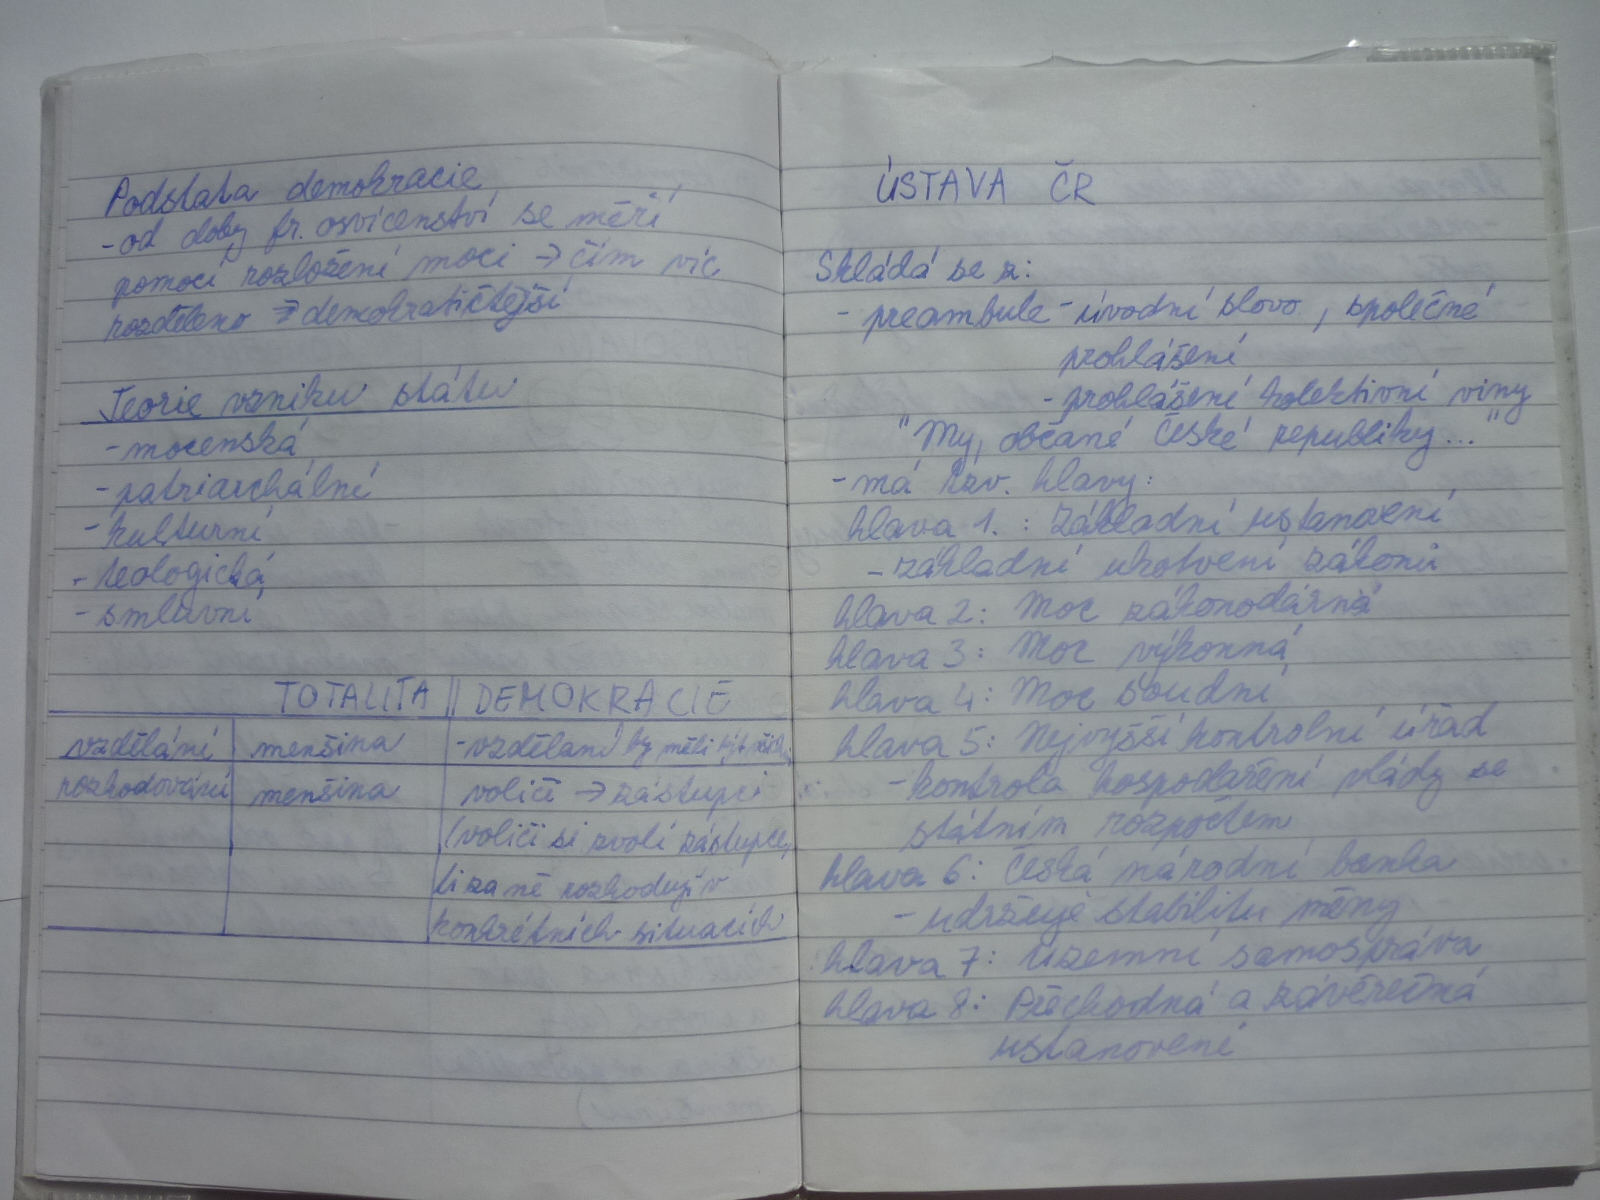 Podstata demokracie
- od doby fr. osvícenství se měří
pomocí rozložení moci → čím víc
rozděleno ⇒ demokratičtější
Teorie vzniku státu
- mocenská
- patriarchální
- kulturní
- teologická
- smluvní
TOTALITA || DEMOKRACIE
vzdělání menšina - vzdělaní by měli být všich.
rozhodování menšina voliči → zástupci
(voliči si zvolí zástupce,
ti za ně rozhodují v
konkrétních situacích
ÚSTAVA ČR
Skládá se z:
- preambule - úvodní slovo, společné
prohlášení
- prohlášení kolektivní viny
"My, občané České republiky..."
- má tzv. hlavy:
hlava 1. : Základní ustanovení
- základní ukotvení zákonů
hlava 2: Moc zákonodárná
hlava 3: Moc výkonná
hlava 4: Moc soudní
hlava 5: Nejvyšší kontrolní úřad
- kontrola hospodaření vlády se
státním rozpočtem
hlava 6: Česká národní banka
- udržuje stabilitu měny
hlava 7: Územní samospráva
hlava 8: Přechodná a závěrečná
ustanovení